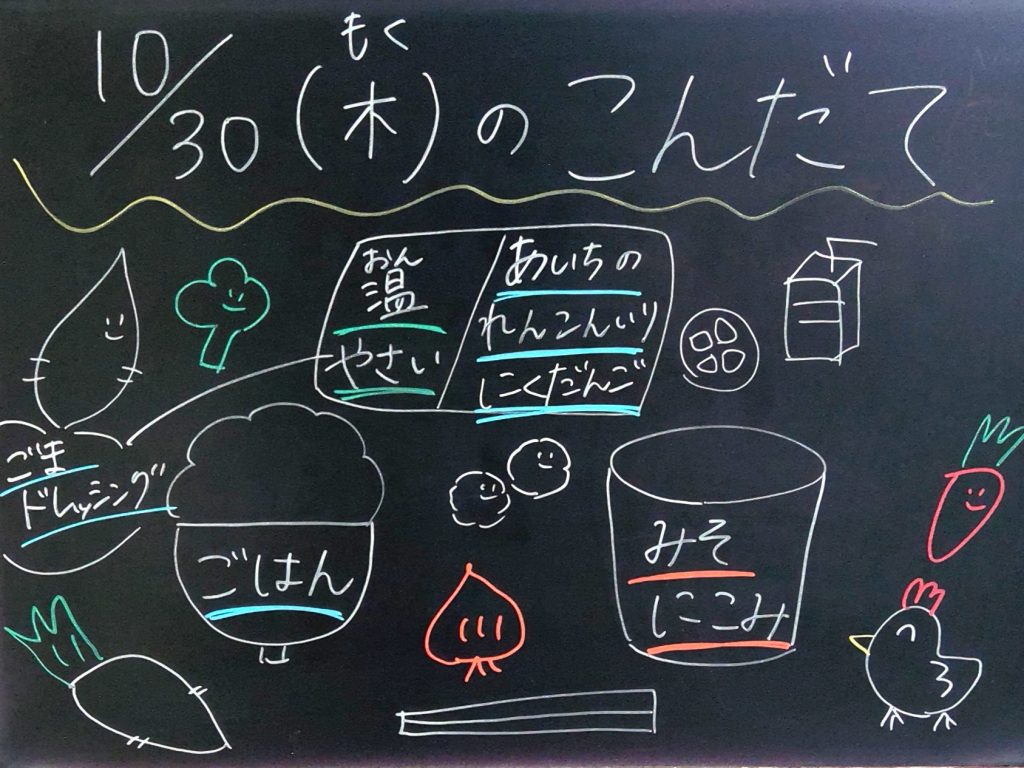 もく
10/30(木)のこんだて
おん
温
やさい
あいちの
れんこんいり
にくだんご
ごま
ドレッシング
ごはん
みそ
にこみ